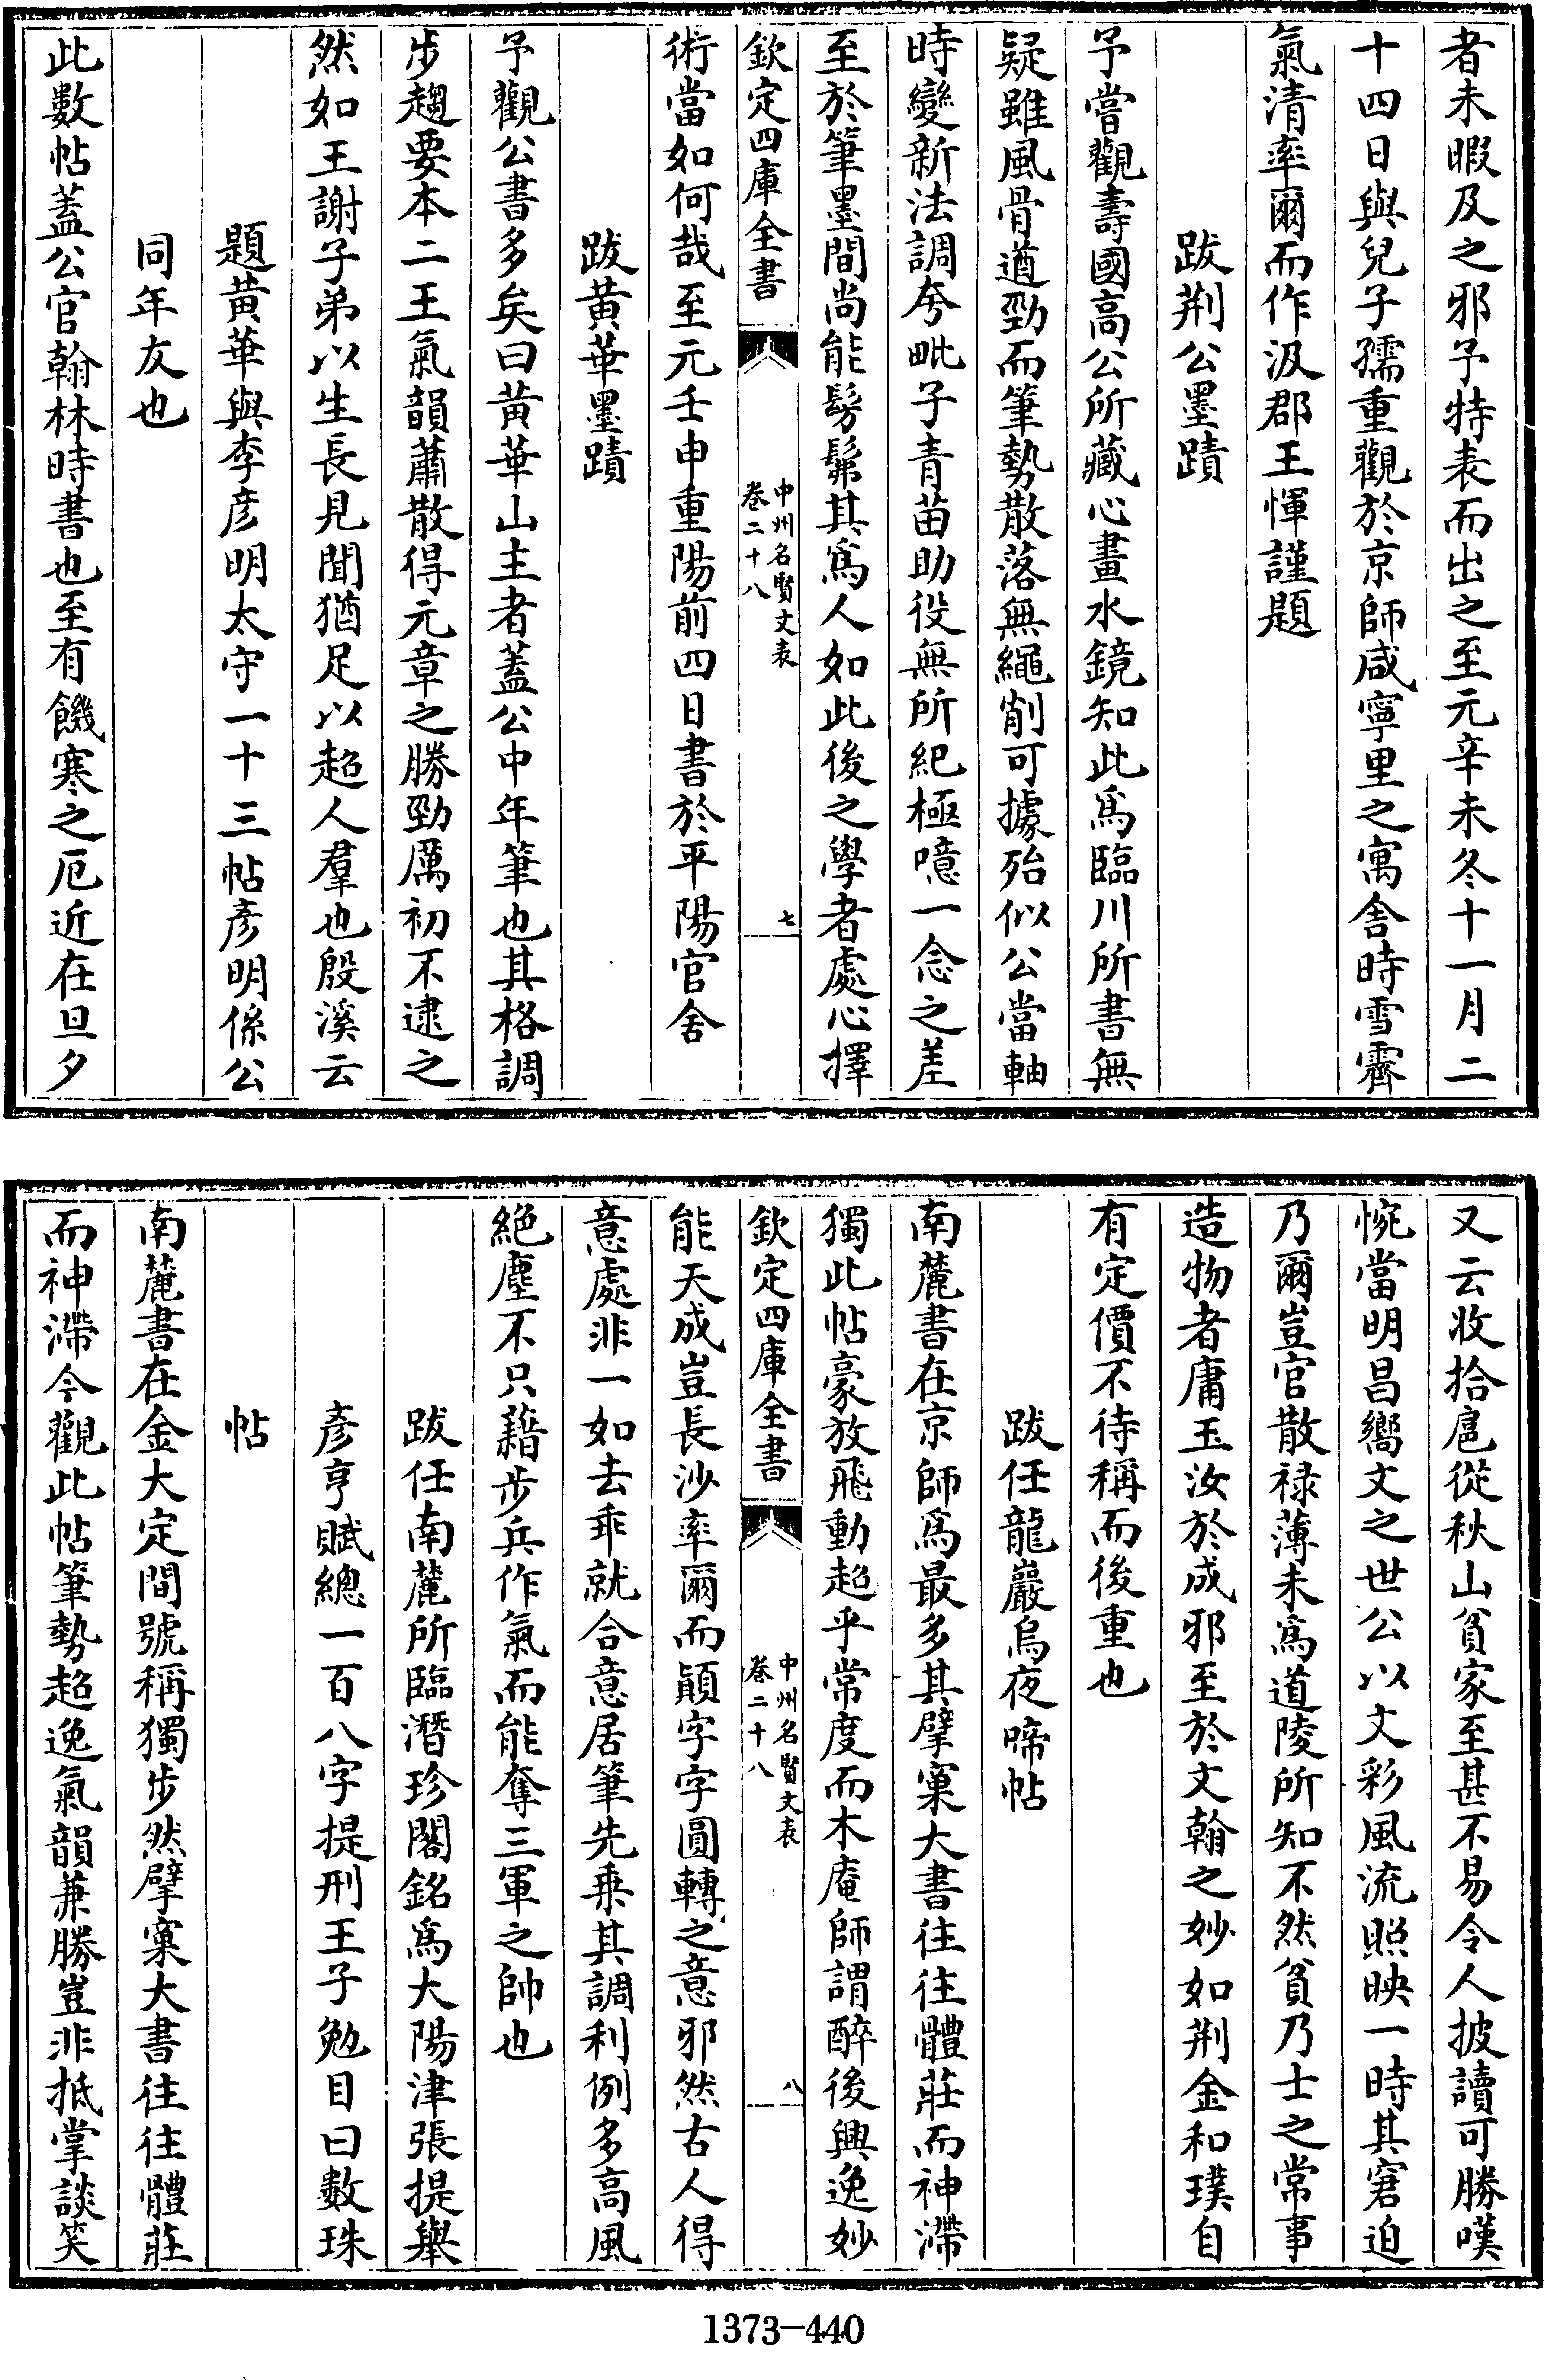 者未暇及之邪予特表而出之至元辛未冬十一月二
十四日與兒子孺重觀於京師咸寧里之寓舍時雪霽
氣清率爾而作汲郡王惲謹題
跋荆公墨蹟
予嘗觀壽國高公所藏心畫水鏡知此爲臨川所書無
疑雖風骨遒勁而筆勢散落無繩削可據殆似公當軸
時變新法調夸毗子青苗助役無所紀極噫一念之差
至於筆墨間尚能髣髴其爲人如此後之學者處心擇
欽定四庫全書
中州名賢文表
卷二十八
七
術當如何哉至元壬申重陽前四日書於平陽官舍
跋黄華墨蹟
予觀公書多矣曰黄華山主者蓋公中年筆也其格調
步趨要本二王氣韻蕭散得元章之勝勁厲初不逮之
然如王謝子弟以生長見聞猶足以超人羣也殷溪云
題黄華與李彦明太守一十三帖彦明係公
同年友也
此數帖蓋公官翰林時書也至有饑寒之厄近在旦夕
又云收拾扈從秋山貧家至甚不易令人披讀可勝嘆
惋當明昌嚮文之世公以文彩風流照映一時其窘迫
乃爾豈官散禄薄未爲道陵所知不然貧乃士之常事
造物者庸玉汝於成邪至於文翰之妙如荆金和璞自
有定價不待稱而後重也
跋任龍巖烏夜啼帖
南麓書在京師爲最多其擘窠大書往往體莊而神滯
獨此帖豪放飛動超乎常度而木庵師謂醉後興逸妙
欽定四庫全書
中州名賢文表
卷二十八
八
能天成豈長沙率爾而顚字字圓轉之意邪然古人得
意處非一如去乖就合意居筆先乗其調利例多高風
絶塵不只藉步兵作氣而能奪三軍之帥也
跋任南麓所臨潛珍閣銘爲大陽津張提舉
彦亨賦總一百八字提刑王子勉目曰數珠
帖
南麓書在金大定間號稱獨步然擘窠大書往往體莊
而神滯今觀此帖筆勢超逸氣韻兼勝豈非抵掌談笑
1373-440